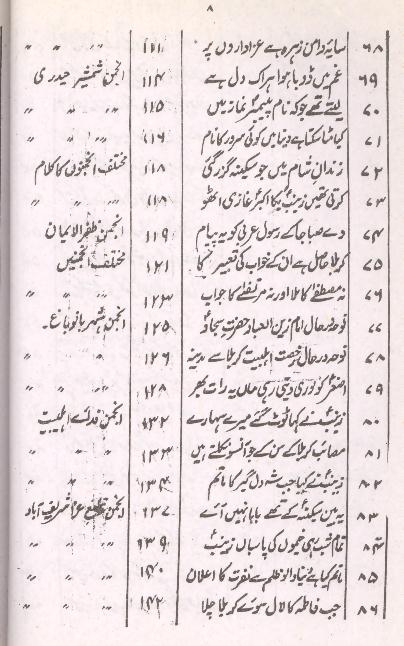 ۸
۶۸ سایۂ دامن زہرہ ہے عزاداروں پر ۱۱۱ 〃 〃 〃
۶۹ غم میں ڈوبا ہوا ہر اک دل ہے ۱۱۴ انجمن شمشیر حیدری
۷۰ لیتے تھے جو کہ نام پیمبرؐ نماز میں ۱۱۵ 〃 〃 〃
۷۱ کیا مٹا سکتا ہے دنیا میں کوئی سرور کا نام ۱۱۶ 〃 〃 〃
۷۲ زندانِ شام میں جو سکینہ گذر گئی ۱۱۸ مختلف انجمنوں کا کلام
۷۳ کرتی تھیں زینبؑ بکا اکبرؑ غازی اٹھو ۱۱۸ 〃 〃 〃
۷۴ دے صبا جا کے رسول عربی کو یہ پیام ۱۱۹ انجمن ظفر الایمان
۷۵ کربلا حاصل ہے ان کے خواب کی تعبیر کا ۱۲۱ مختلف انجمنیں
۷۶ نہ مصطفےٰؐ کا ملا اور نہ مرتضےٰؑ کا جواب ۱۲۳ 〃 〃 〃
۷۷ نوحہ در حال امام زین العباد حضرت سجادؑ ۱۲۵ انجمن شہر بانو باغ۔
۷۸ نوحہ در حال رخصت اہلبیت کربلا سے مدینہ ۱۲۶ 〃 〃 〃
۷۹ اصغرؑ کو لوری دیتی رہی ماں یہ رات بھر ۱۲۸ 〃 〃 〃
۸۰ زینبؑ نے کہا ٹوٹ گئے میرے سہارے ۱۳۲ انجمن فدائے اہلبیت
۸۱ مصائب کربلا کے سن کے جو آنسو نکلتے ہیں ۱۳۳ 〃 〃 〃
۸۲ زینبؑ نے کہا جب شہ دلگیر کا ماتم ۱۳۴ 〃 〃 〃
۸۳ یہ بین سکینہؑ کے تھے بابا نہیں آئے ۱۳۷ انجمن عزا شریف آباد
۸۴ تمام شب رہی خیموں کی پاسباں زینبؑ ۱۳۹ 〃 〃 〃
۸۵ ماتم کیا ہے بنیاد ظلم سے نفرت کا اعلان ۱۴۰ 〃 〃 〃
۸۶ جب فاطمہ کا لال سوئے کربلا چلا ۱۴۲ 〃 〃 〃